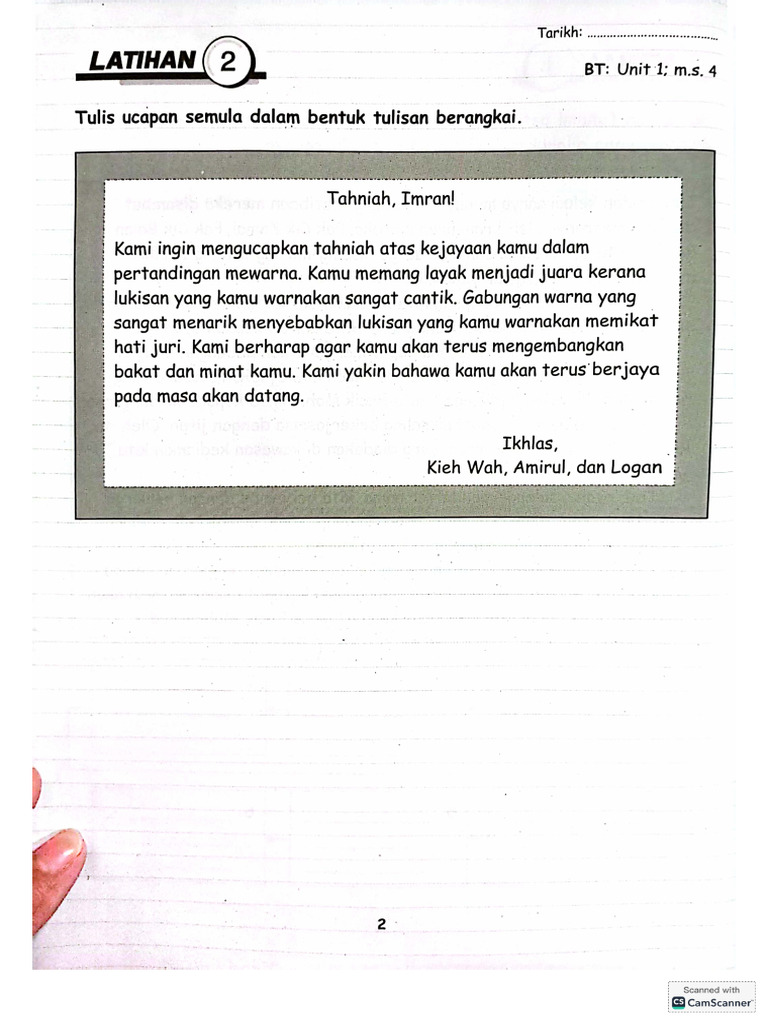 Tarikh: ........................................
LATIHAN 2
BT: Unit 1; m.s. 4
Tulis ucapan semula dalam bentuk tulisan berangkai.
Tahniah, Imran!
Kami ingin mengucapkan tahniah atas kejayaan kamu dalam
pertandingan mewarna. Kamu memang layak menjadi juara kerana
lukisan yang kamu warnakan sangat cantik. Gabungan warna yang
sangat menarik menyebabkan lukisan yang kamu warnakan memikat
hati juri. Kami berharap agar kamu akan terus mengembangkan
bakat dan minat kamu. Kami yakin bahawa kamu akan terus berjaya
pada masa akan datang.
Ikhlas,
Kieh Wah, Amirul, dan Logan
2
Scanned with
CS CamScanner